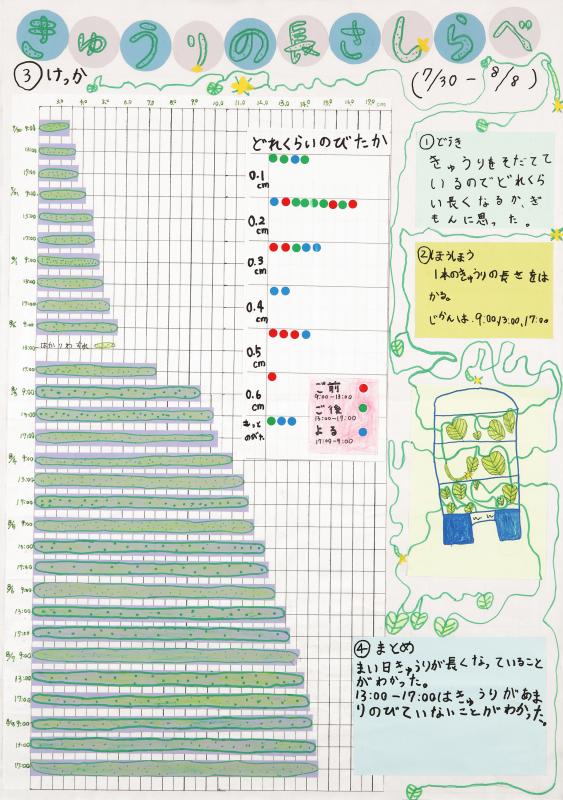 きゅうりの長さしらべ
③けっか
(7/30 − 8/8)
3.0 4.0 5.0 6.0 7.0 8.0 9.0 10.0 11.0 12.0 13.0 14.0 15.0 16.0 17.0 cm
7/30 9:00
13:00
17:00
7/31 9:00
13:00
17:00
8/1 9:00
13:00
17:00
8/2 9:00
13:00 はかりわすれ
17:00
8/3 9:00
13:00
17:00
8/4 9:00
13:00
17:00
8/5 9:00
13:00
17:00
8/6 9:00
13:00
17:00
8/7 9:00
13:00
17:00
8/8 9:00
13:00
17:00
どれくらいのびたか
0.1
cm
0.2
cm
0.3
cm
0.4
cm
0.5
cm
0.6
cm
もっと
のびた
ご前
9:00−13:00
ご後
13:00−17:00
よる
17:00−9:00
①どうき
きゅうりをそだてて
いるのでどれくら
い長くなるか、ぎ
もんに思った。
②ほうほう
1本のきゅうりの長さをは
かる。
じかんは、9:00,13:00,17:00
④まとめ
まい日きゅうりが長くなっていること
がわかった。
13:00−17:00はきゅうりがあま
りのびていないことがわかった。